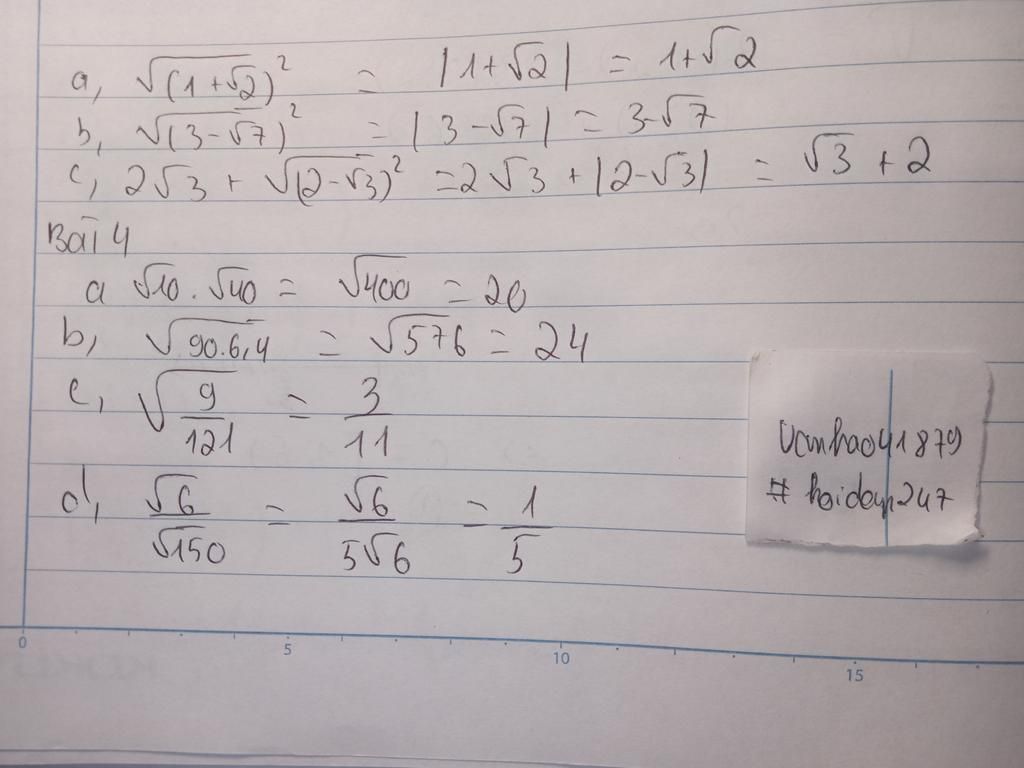 a, √(1+√2)² = |1+√2| = 1+√2
b, √(3-√7)² = |3-√7| = 3-√7
c, 2√3 + √(2-√3)² = 2√3 + |2-√3| = √3 + 2
Bài 4
a √10.√40 = √400 = 20
b, √90.6,4 = √576 = 24
c, √9/121 = 3/11
d, √6/√150 = √6/5√6 = 1/5
Vanhao41879
# hoidap247
0 5 10 15